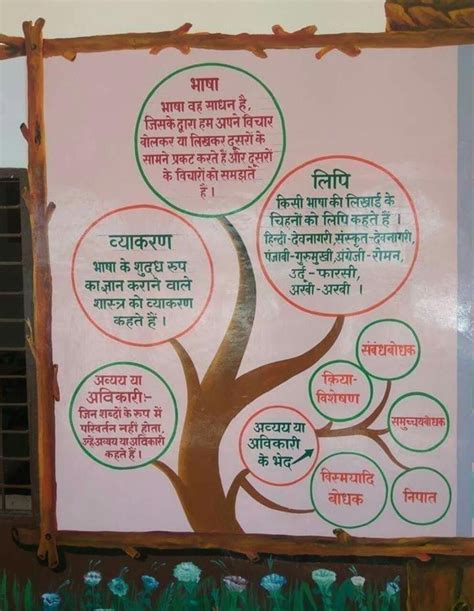 भाषा
भाषा वह साधन है,
जिसके द्वारा हम अपने विचार
बोलकर या लिखकर दूसरों के
सामने प्रकट करते हैं और दूसरों
के विचारों को समझते
हैं ।
लिपि
किसी भाषा की लिखाई के
चिहनों को लिपि कहते हैं ।
हिन्दी-देवनागरी, संस्कृत-देवनागरी,
पंजाबी-गुरुमुखी, अंग्रेजी-रोमन,
उर्दू-फारसी,
अरबी-अरबी ।
व्याकरण
भाषा के शुद्ध रुप
का ज्ञान कराने वाले
शास्त्र को व्याकरण
कहते हैं ।
अव्यय या
अविकारी:-
जिन शब्दों के रूप में
परिवर्तन नहीं होता,
उन्हें अव्यय या अविकारी
कहते हैं ।
अव्यय या
अविकारी
के भेद
संबंधबोधक
क्रिया-
विशेषण
समुच्चयबोधक
विस्मयादि
बोधक
निपात